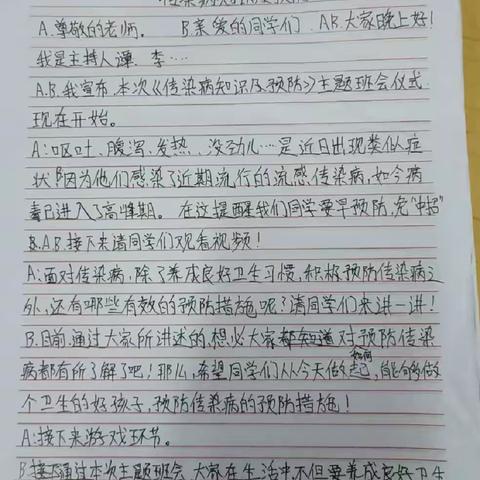 A.尊敬的老师。 B.亲爱的同学们 AB.大家晚上好!
我是主持人谭、李…
A.B.我宣布,本次《传染病知识及预防》主题班会仪式
现在开始。
A:呕吐、腹泻、发热、没劲儿…是近日出现类似症
状,因为他们感染了近期流行的流感传染病,如今病
毒已进入了高峰期。在这提醒我们同学要早预防,免“中招”
B.AB.接下来请同学们观看视频!
A:面对传染病,除了养成良好卫生习惯,积极预防传染病之
外,还有哪些有效的预防措施呢?请同学们来讲一讲!
B.目前,通过大家所讲述的,想必大家都知道对预防传染
病都有所了解了吧!那么,希望同学们从今天做起,能够做
个卫生的好孩子,预防传染病的预防措施!
A:接下来游戏环节。
B通过本次主题班会,大家在生活中不但要养成良好卫生